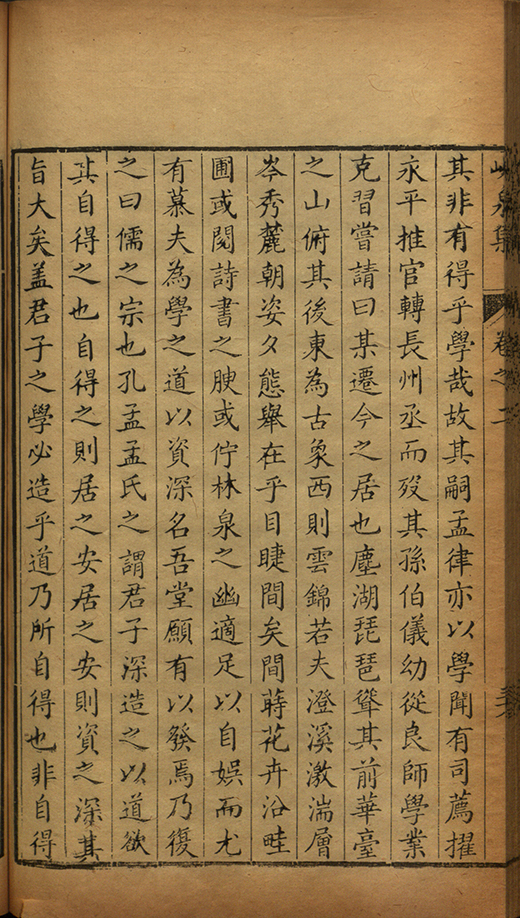 峴泉集 卷之二
其非有得乎學哉故其嗣孟律亦以學聞有司薦擢
永平推官轉長州丞而歿其孫伯儀幼從良師學業
克習嘗請曰某遷今之居也塵湖琵琶聳其前華臺
之山俯其後東為古象西則雲錦若夫澄溪激湍層
岑秀麓朝姿夕態舉在乎目睫間矣間蒔花卉沿畦
圃或閱詩書之腴或佇林泉之幽適足以自娛而尤
有慕夫為學之道以資深名吾堂願有以發焉乃復
之曰儒之宗也孔孟孟氏之謂君子深造之以道欲
其自得之也自得之則居之安居之安則資之深其
旨大矣盖君子之學必造乎道乃所自得也非自得